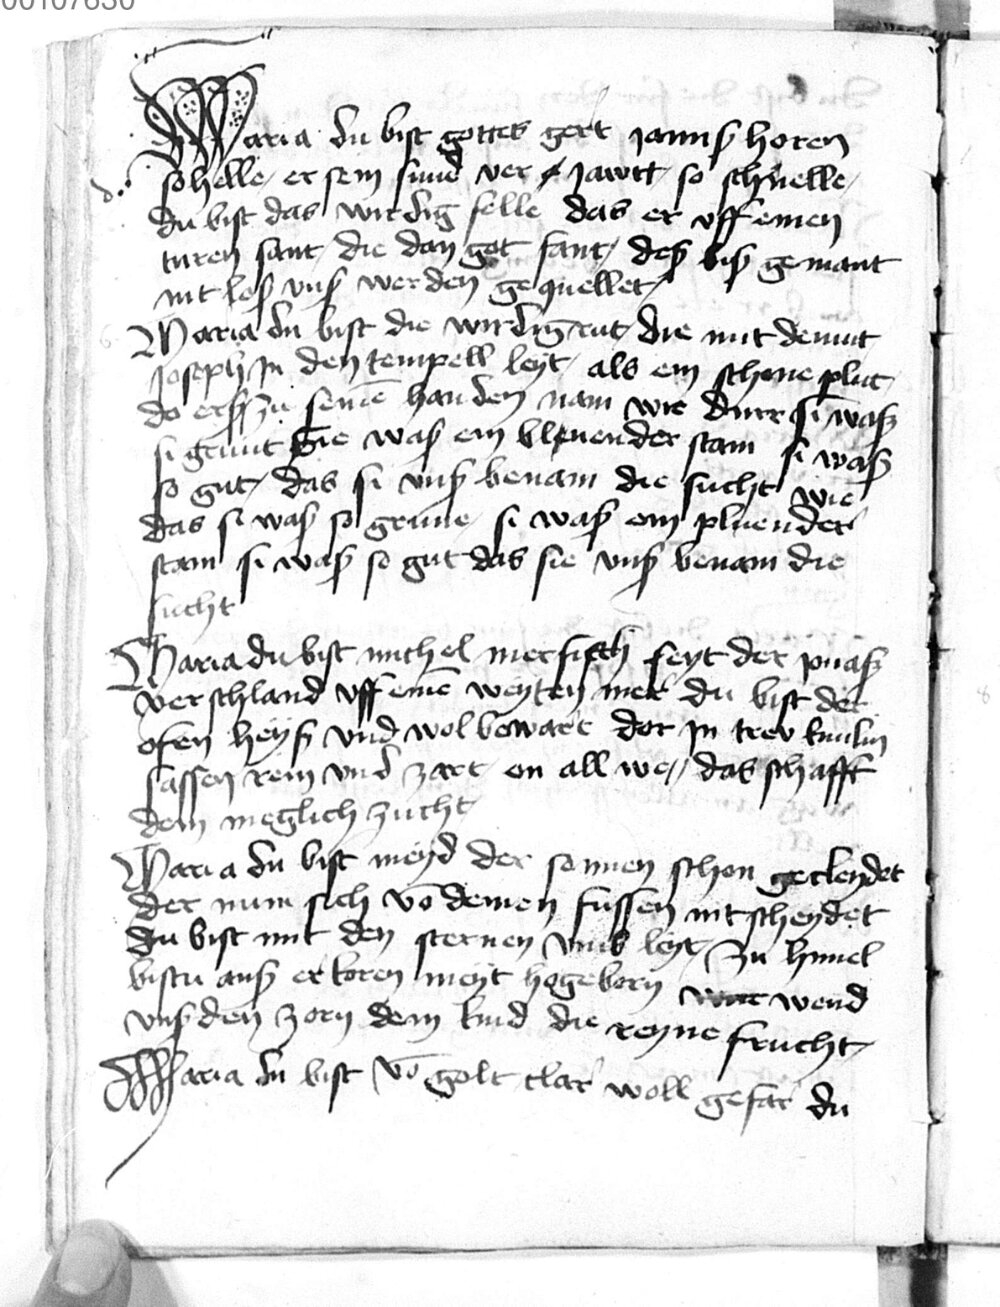 00107630
Maria du bist gottes gert jann ß horen
so helle / er sein sund ver jawtt / so schnelle /
du bist das wirdig felle das er vff einen
turen sant / die dan got sant / deß biß gemant
nit loß vnß werden gequellet /
Maria du bist die wirdig rut / die mit demut
joseph in den tempell leyt / als ein schone plut /
do erß zu seinē handen nam wie durr si waß
si grunt Sie waß ein bluender stam si waß
so gut / das si vnß benam die sucht wie
das si waß so grune / si waß ein pluender
stam si waß so gut das sie vnß benam die
sucht
Maria du bist michel mer fisch seyt der jonaß
verschland vff einē weyten mer du bist der
ofen heyß vnd wol bewart dor in trey kindlin
sassen rein vnd zart / on all we // das schafft
dein meglich zucht /
Maria du bist meyd der sonnen schon gecleydet
der mun sich vō deinen fussen nit scheydet
du bist mit den sternen vmb leyt / zu himel
bistu auß erkoren meyt hogeborn wend
vnß den zorn dem kind die reyne frucht /
Maria du bist vō golt clar woll gefar du